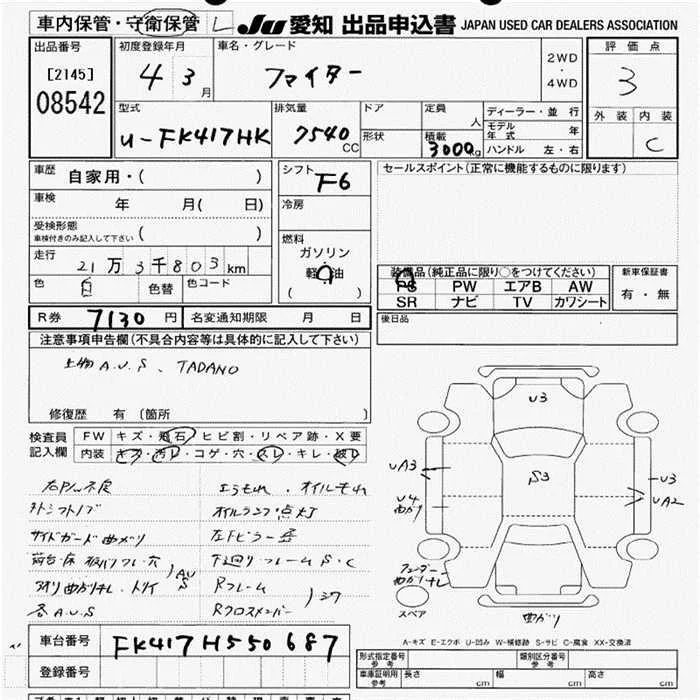 車内保管・守衛保管 L
JU 愛知 出品申込書 JAPAN USED CAR DEALERS ASSOCIATION
出品番号
[2145]
08542
初度登録年月
4 3 月
車名・グレード
ファイター
2WD
・
4WD
評価点
3
外装 内装
C
型式
U-FK417HK
排気量
7540 CC
ドア
形状
定員
人
積載
3000 kg
ディーラー・並 行
モデル年式 年
ハンドル 左・右
車歴 自家用・( )
車検 年 月( 日)
受検形態
車検付きのみ記入して下さい ( )
走行
21万3千803km
色 白 色替 色コード
シフト F6
冷房
燃料
ガソリン
軽 油
( )
セールスポイント(正常に機能するものに限ります)
装備品(純正品に限り○をつけてください)
PS PW エアB AW
SR ナビ TV カワシート
新車保証書
有・無
R券 7130 円 名変通知期限 月 日
後日品
注意事項申告欄(不具合内容等は具体的に記入して下さい)
上物A.U.S、TADANO
修復歴 有 (箇所 )
検査員
記入欄
FW キズ・飛石・ヒビ割・リペア跡・X要
内装 キズ・汚レ・コゲ・穴・スレ・キレ・破レ
外シフトノブ
サイドガード曲メリ
各A.U.S
オイルランプ点灯
下廻りフレームS・C
Rフレーム
Rクロスメンバー
U3
S3
UA3
U4
曲がり
U3
UA2
曲がり
スペア
A-キズ E-エクボ U-凹み W-補修跡 S-サビ C-腐食 XX-交換済
車台番号 FK417H550687
登録番号
形式指定番号
参考
類別区分番号
参考
車庫証明用
参考
長さ cm 幅 cm 高さ cm